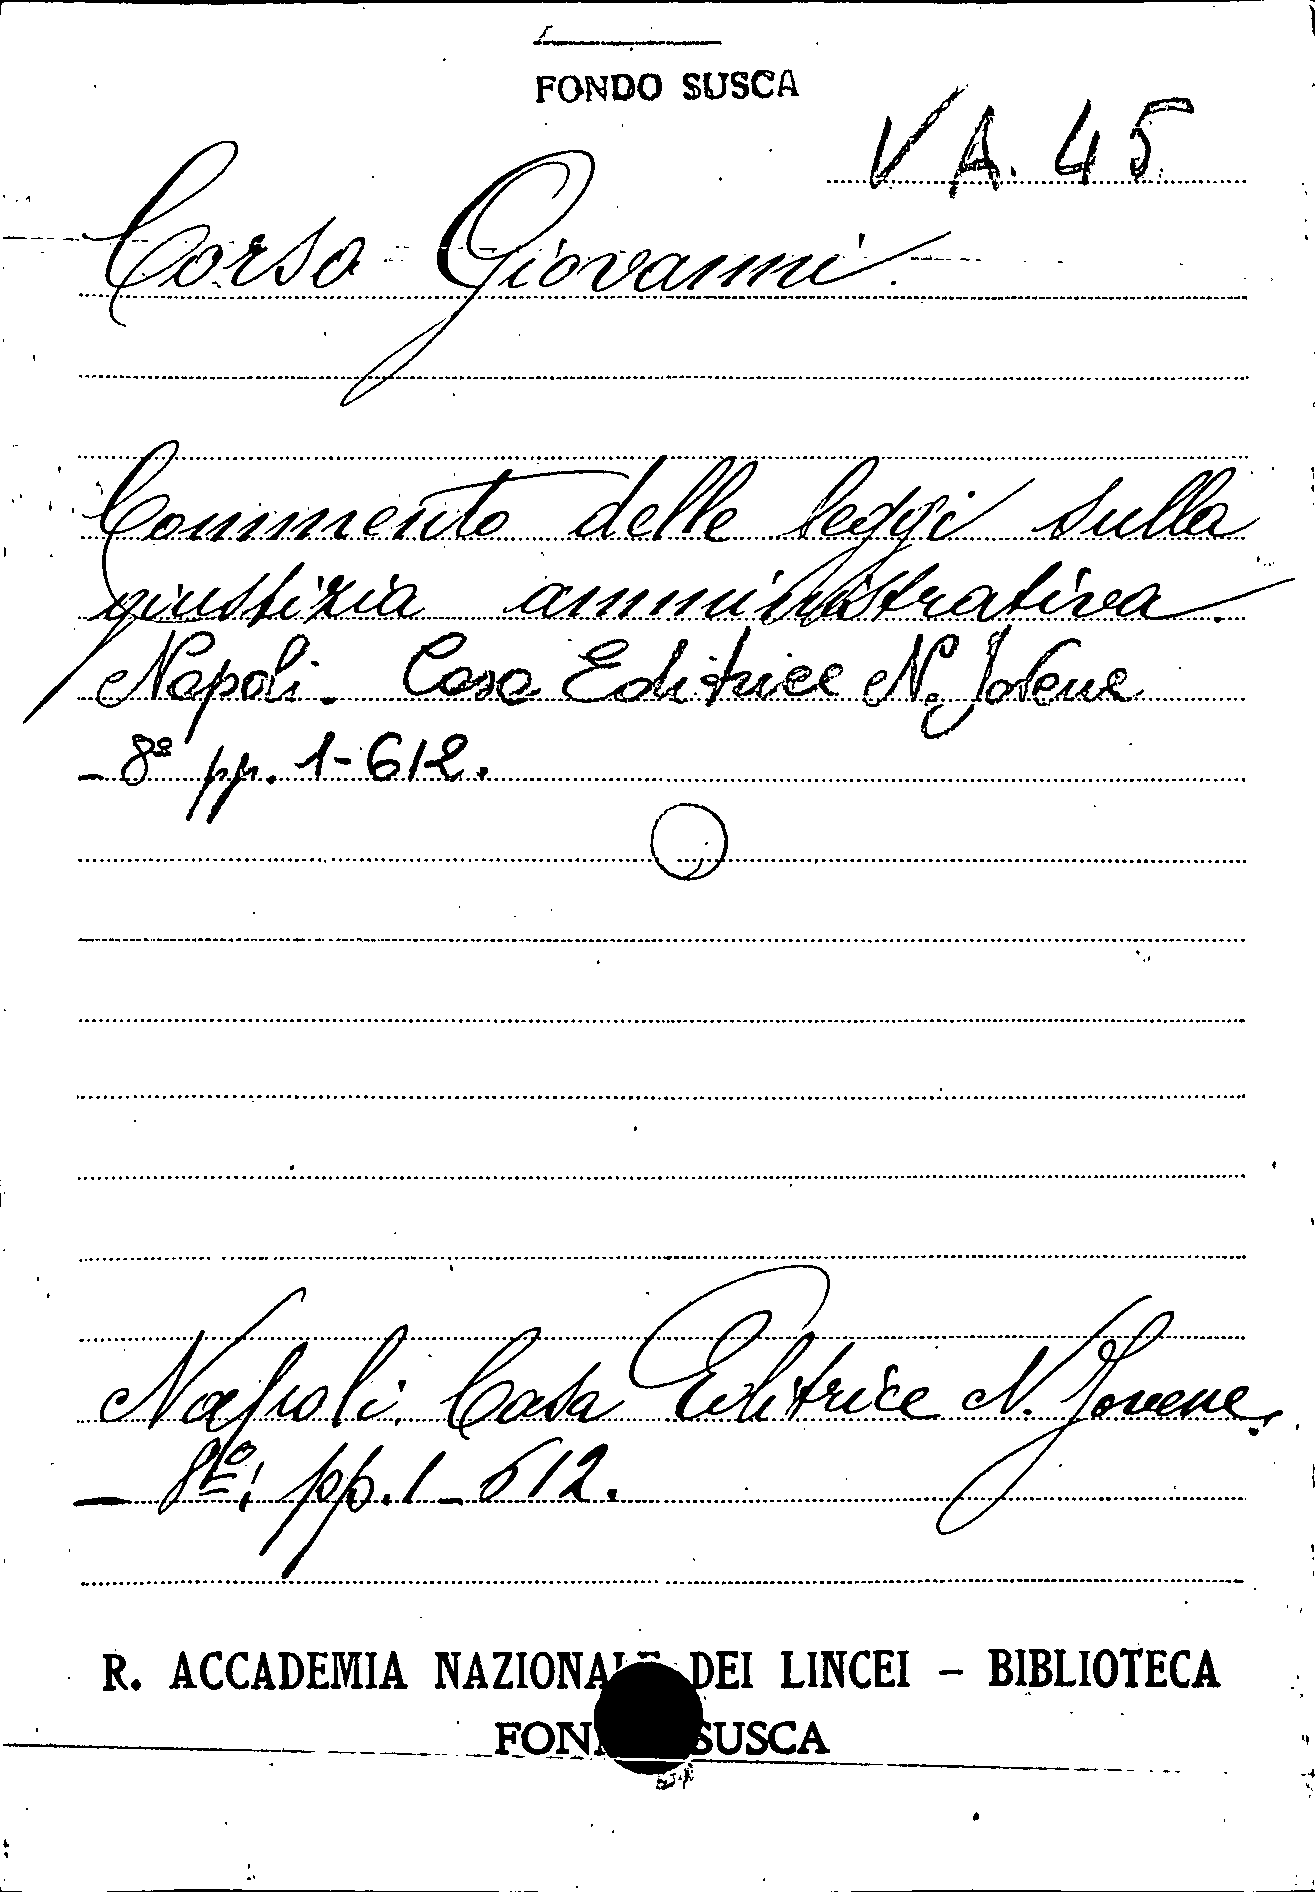 FONDO SUSCA
V A. 45
Corso Giovanni
Commento delle leggi sulla
giustizia amministrativa.
Napoli. Casa Editrice N. Jovene
- 8º pp. 1-612.
Napoli. Casa Editrice N. Jovene.
- 8º; pp. 1-612.
R. ACCADEMIA NAZIONALE DEI LINCEI - BIBLIOTECA
FONDO SUSCA